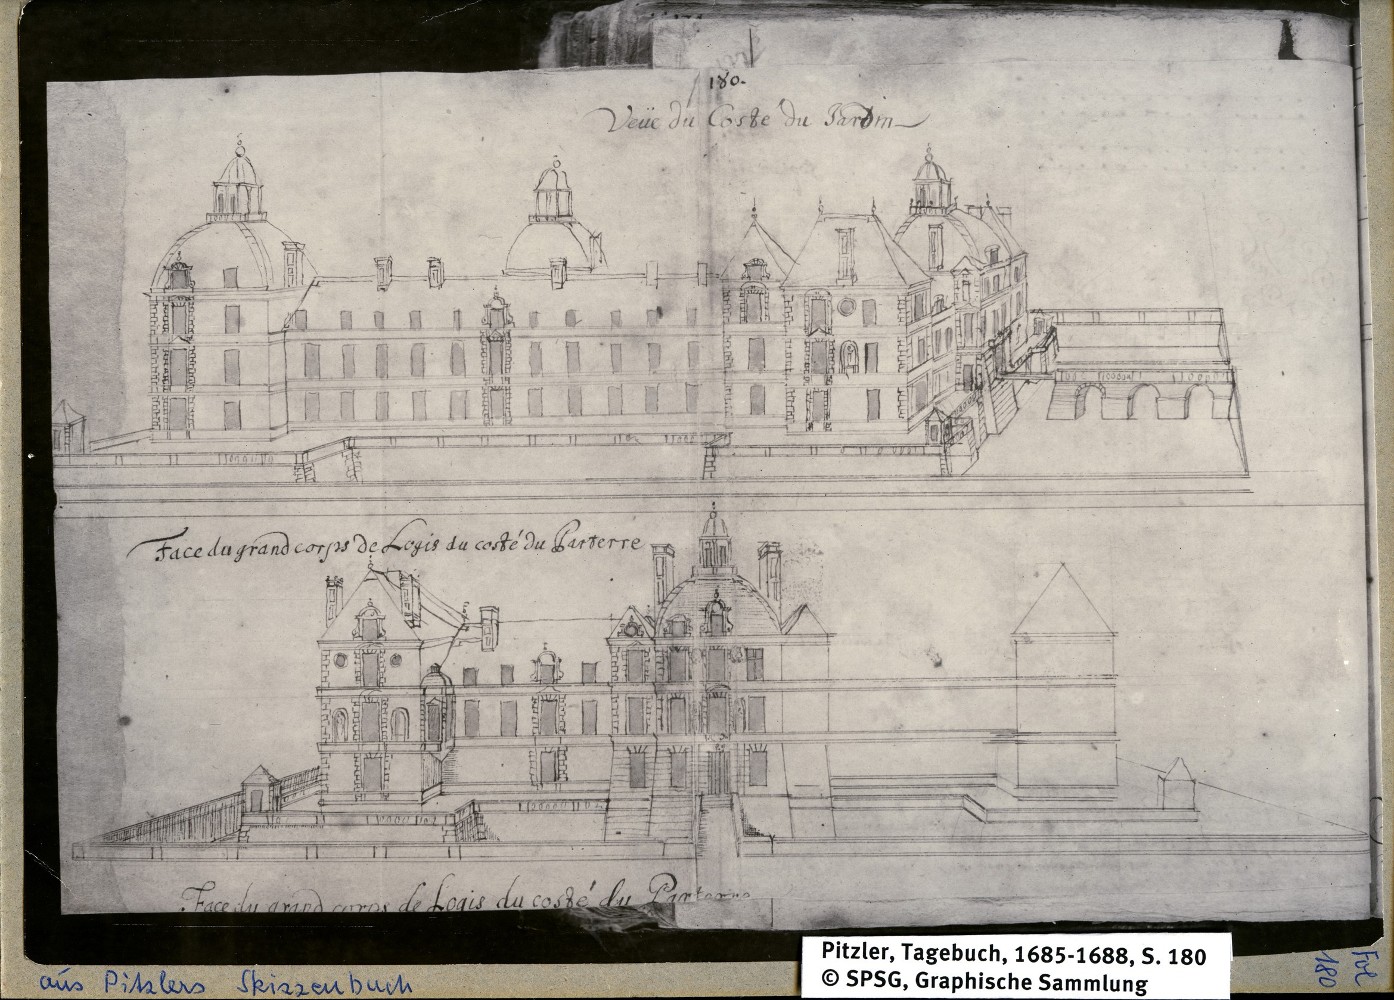 180.
Veüe du Costé du Jardin
Face du grand corps de Logis du costé du Parterre
Face du grand corps de Logis du costé du Parterre
Pitzler, Tagebuch, 1685-1688, S. 180
© SPSG, Graphische Sammlung
aus Pitzlers Skizzenbuch
Fol
180